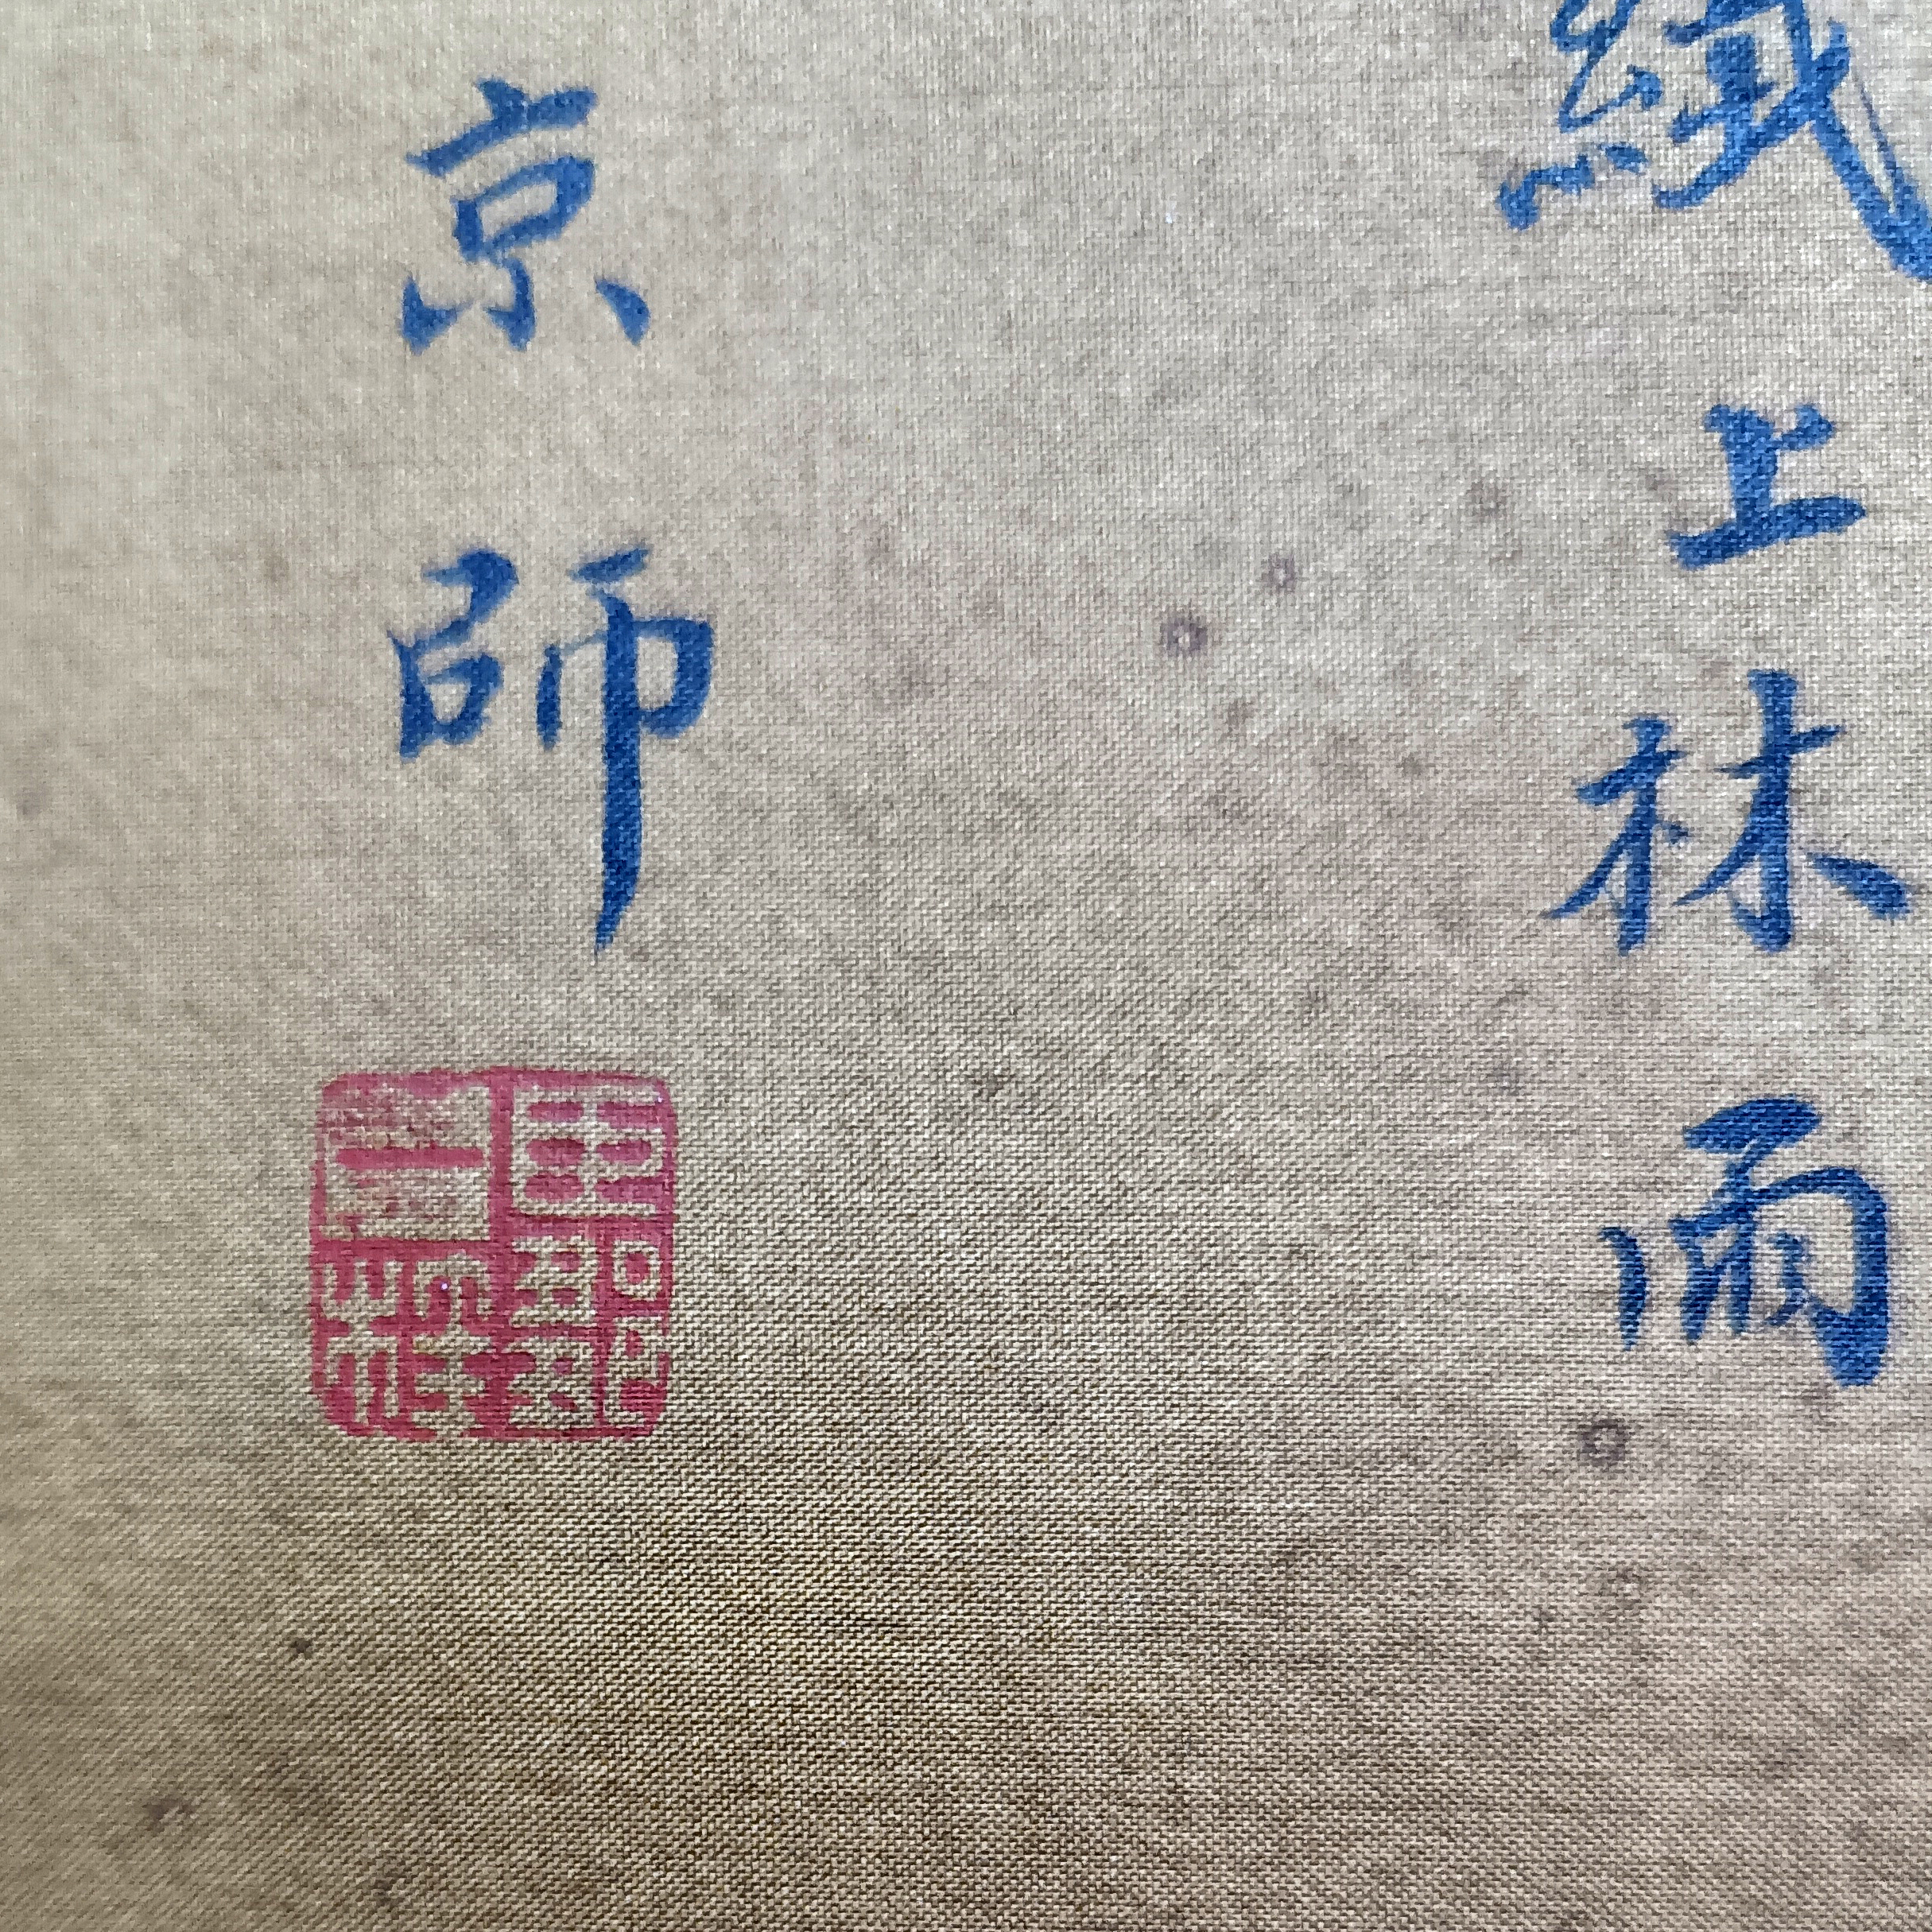 織上林雨
京師